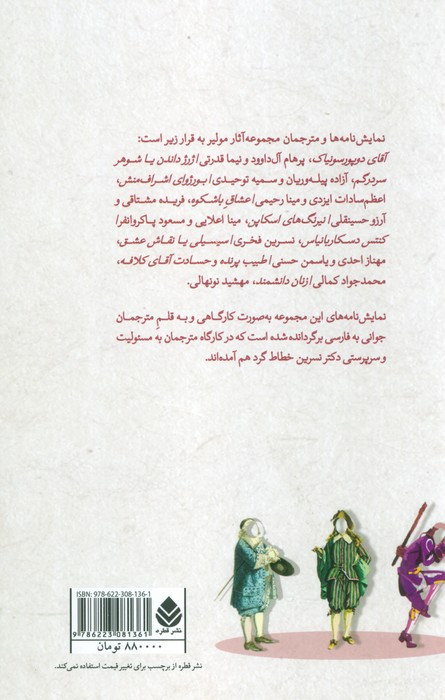 نمایش‌نامه‌ها و مترجمان مجموعه‌آثار مولیر به قرار زیر است:
آقای دوپورسونیاک، پرهام آل‌داوود و نیما قدرتی/ ژرژ داندن یا شوهر
سردرگم، آزاده پیله‌وریان و سمیه توحیدی/ بورژوای اشراف‌منش،
اعظم‌سادات ایزدی و مینا رحیمی/ عشاقِ باشکوه، فریده مشتاقی و
آرزو حسینقلی/ نیرنگ‌های اسکاپن، مینا اعلایی و مسعود پاکروانفر/
کنتس دسکاربانیاس، نسرین فخری/ سیسیلی یا نقاش عشق،
مهناز احدی و یاسمن حسنی/ طبیب پرنده و حسادت آقای کلافه،
محمدجواد کمالی/ زنان دانشمند، مهشید نونهالی.
نمایش‌نامه‌های این مجموعه به‌صورت کارگاهی و به قلمِ مترجمان
جوانی به فارسی برگردانده شده است که در کارگاه مترجمان به مسئولیت
و سرپرستی دکتر نسرین خطاط گرد هم آمده‌اند.
ISBN: 978-622-308-136-1
9 786223 081361
نشر قطره
۸۸۰۰۰۰ تومان
نشر قطره از برچسب برای تغییر قیمت استفاده نمی‌کند.